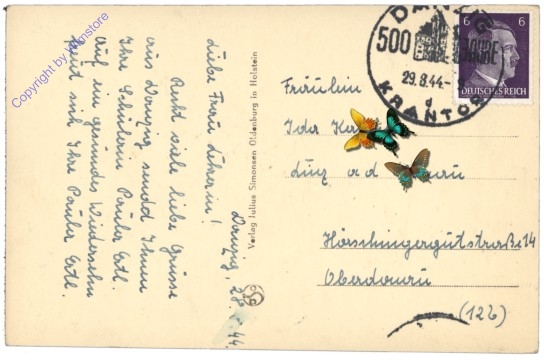 Danzig, 28. 44.
Liebe Frau Lehrerin!
Recht viele liebe Grüsse
aus Danzig sendet Ihnen
Ihre Schülerin Paula Ertl.
Auf ein gesundes Wiedersehn
freut sich Ihre Paula Ertl.
Verlag Julius Simonsen Oldenburg in Holstein
DANZIG
500 JAHRE
29.8.44
d
KRANTOR
6 6
DEUTSCHES REICH
Fräulein
Linz a d
Hörschingergutstraße 14
Oberdonau
(12b)
Copyright by kunstore